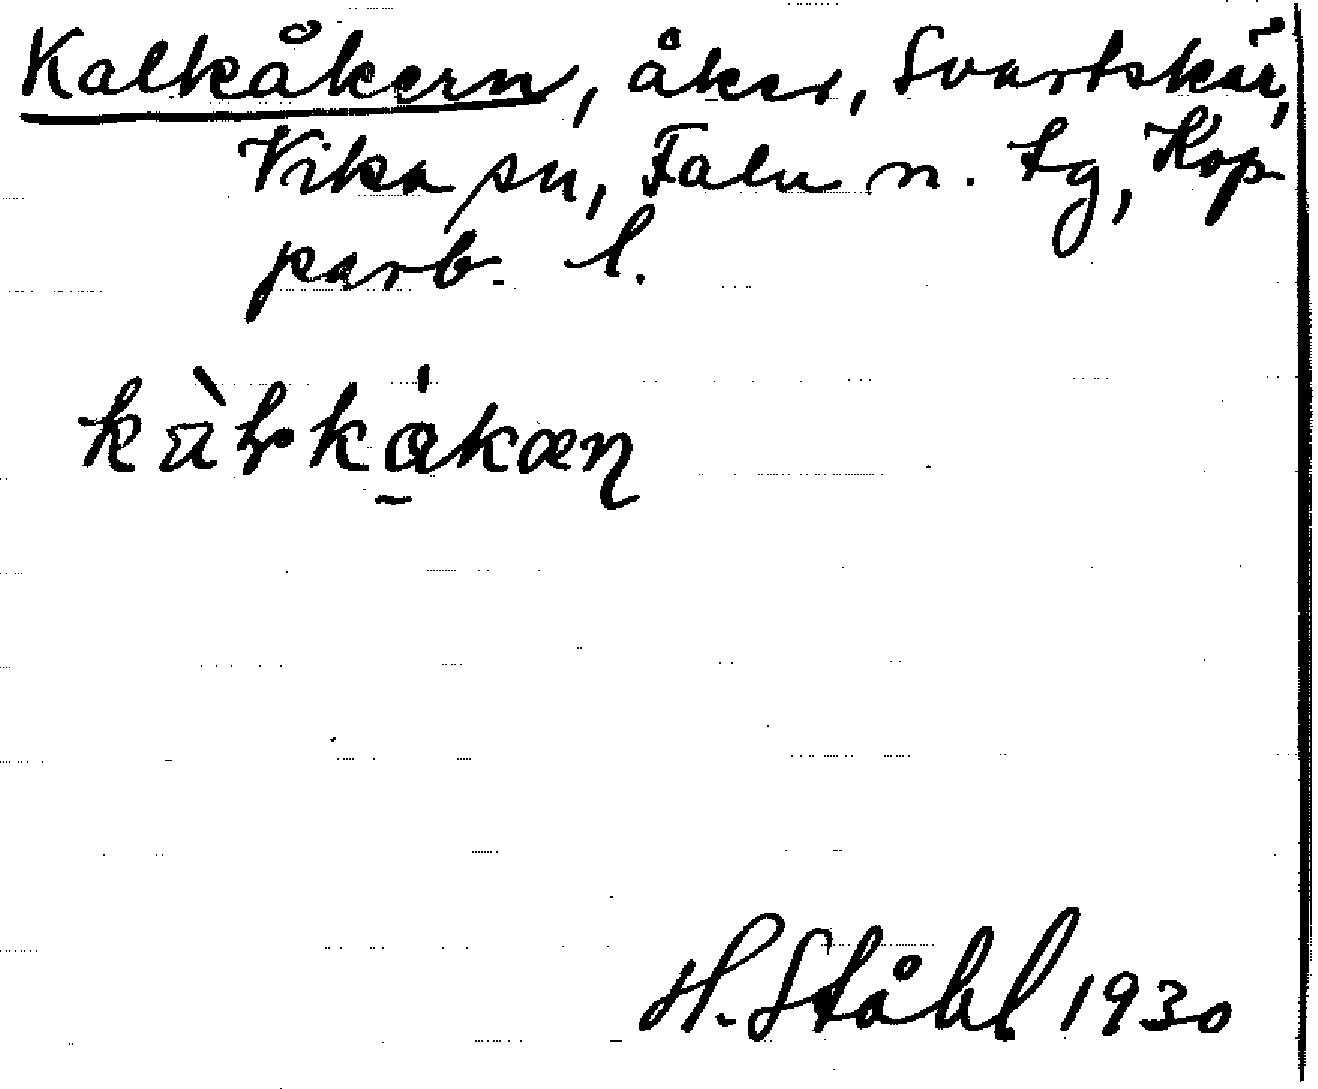 Kalkåkern, åker, Svartskär,
Vika sn, Falu n. tg, Kop-
parb. l.
H. Ståhl 1930